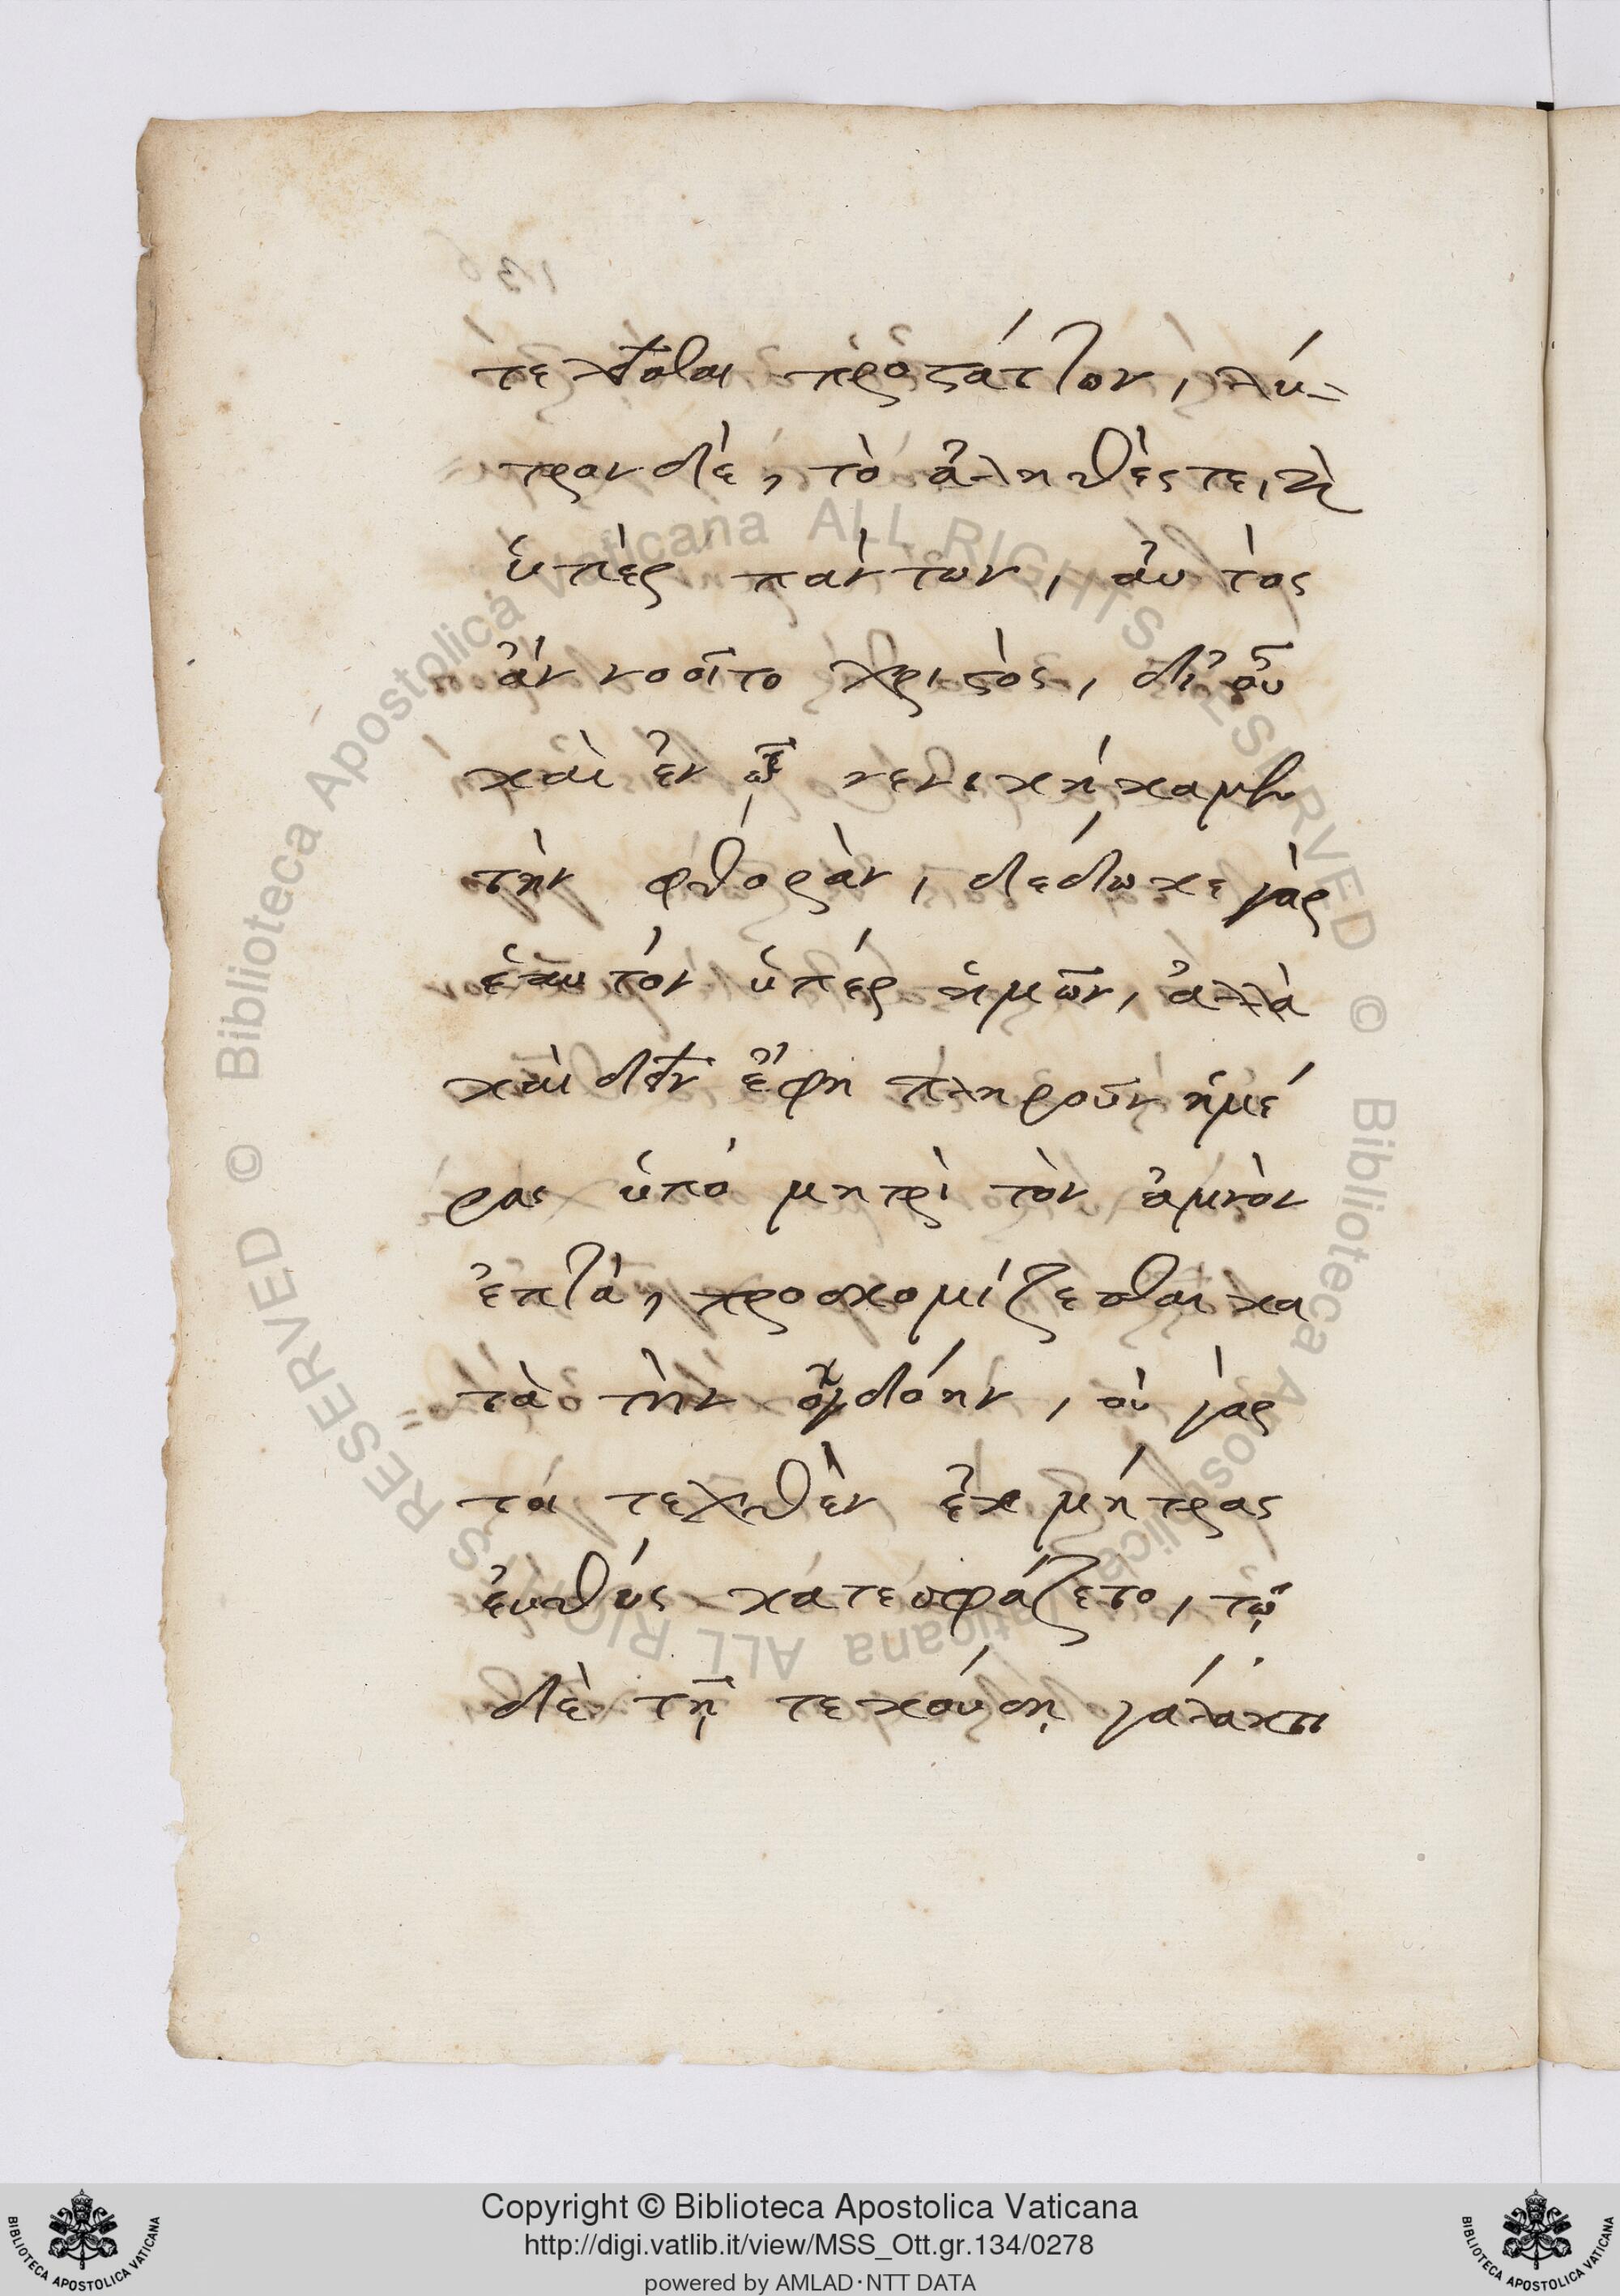 τελεῖσθαι προστάττων, λύ-
τρον δὲ, τὸ ἀληθές τε, καὶ
ὑπὲρ πάντων, αὐτὸς
ἂν νοοῖτο χριστὸς, δι' οὗ
καὶ ἐν ᾧ νενικήκαμεν
τὴν φθορὰν, δέδωκε γὰρ
ἑαυτόν ὑπέρ ἡμῶν, ἀλλὰ
καὶ δεῖν ἔφη πληροῦν ἡμέ
ρας ὑπό μητρὶ τὸν ἀμνὸν
ἑπτὰ, προσκομίζεσθαι κα
τὰ τὴν ὀγδόην, οὐ γὰρ
τό τεχθὲν ἐκ μήτρας
ἐυθύς κατεσφάζετο, τῷ
δὲ τῇ τεκούσῃ γάλακτι
136
Copyright © Biblioteca Apostolica Vaticana
http://digi.vatlib.it/view/MSS_Ott.gr.134/0278
powered by AMLAD·NTT DATA
BIBLIOTECA APOSTOLICA VATICANA
BIBLIOTECA APOSTOLICA VATICANA
© Biblioteca Apostolica Vaticana ALL RIGHTS RESERVED
© Biblioteca Apostolica Vaticana ALL RIGHTS RESERVED